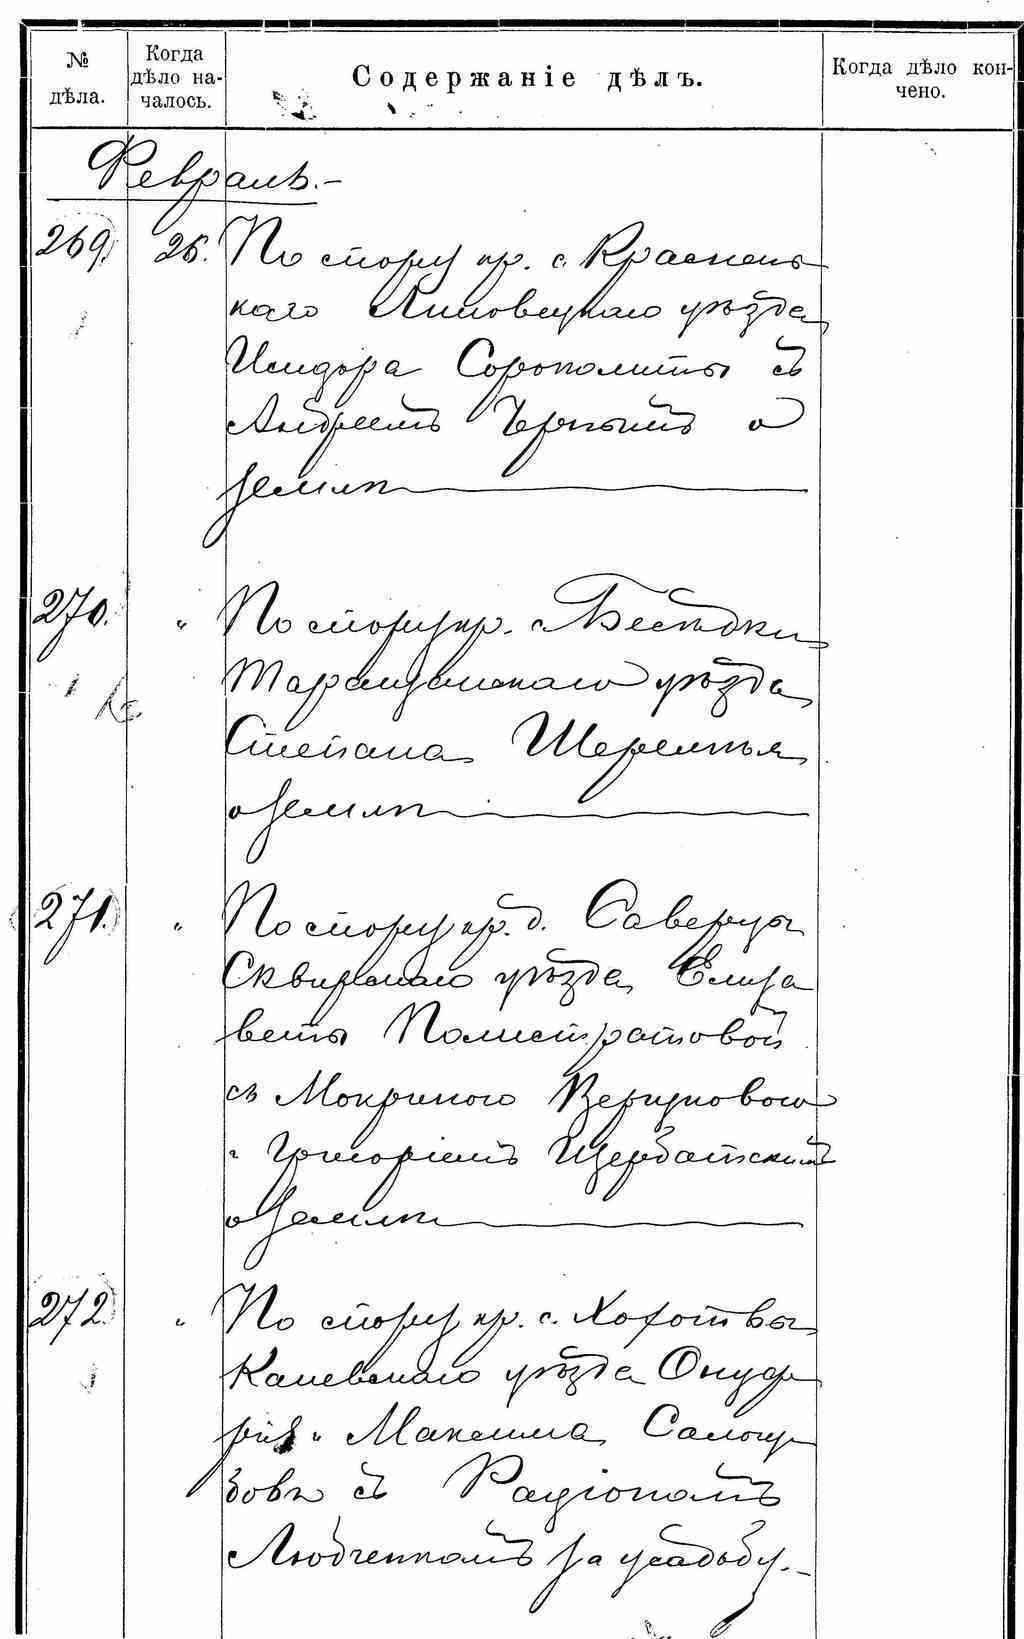 № дѣла.
Когда дѣло на-
чалось.
Содержаніе дѣлъ.
Когда дѣло кон-
чено.
Февраль.-
269. 26. По спору кр. с. Краснень
каго Липовецкаго уѣзда
Исидора Сорополиты съ
Андреемъ Чернымъ о
землѣ
270. " По спору кр. с. Бесѣдки
Таращанскаго уѣзда
Степана Шеремтья
о землѣ
271. " По спору кр. д. Саверцы
Сквирскаго уѣзда Елиза
веты Полистратовой
съ Мокриною
и Григоріемъ Щербатскимъ
о землѣ
272. " По спору кр. с. Хохотвы
Каневскаго уѣзда Онуф
рія и Максима
съ Радіономъ
Любченкомъ за усадьбу.-